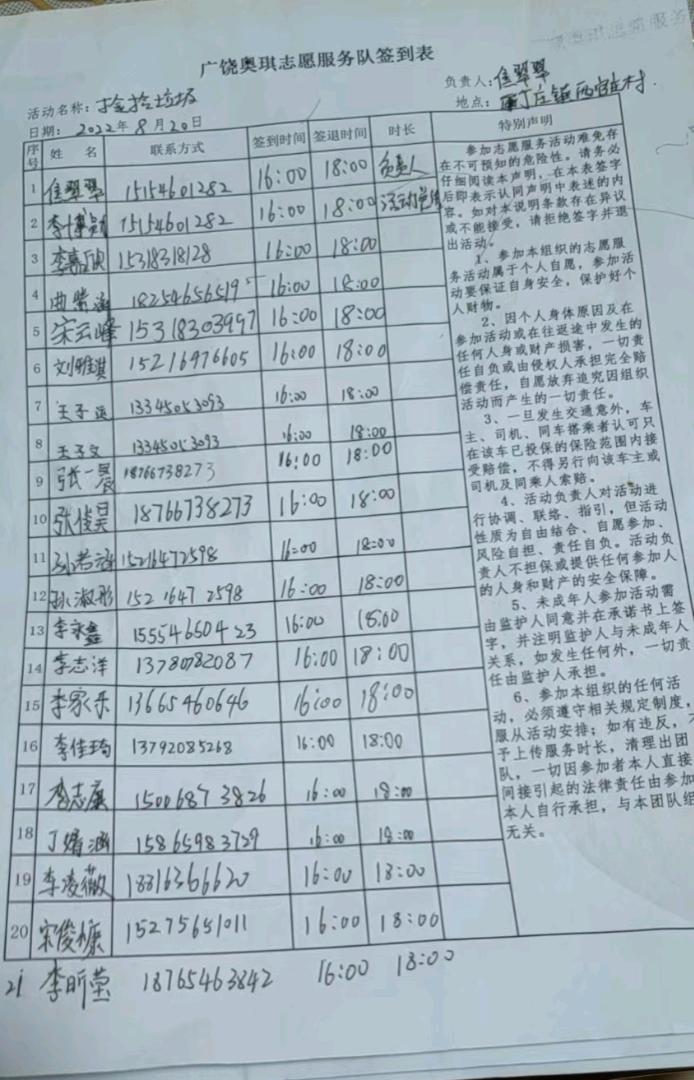 广饶奥琪志愿服务队签到表
活动名称：捡拾垃圾
负责人：
日期：2022年8月20日
地点：丁庄镇西
序号 姓名 联系方式 签到时间 签退时间 时长 特别声明
1 15154601282 16:00 18:00 负责人
2 李 15154601282 16:00 18:00 活动
3 李嘉欣 15318318128 16:00 18:00
4 曲 18254656519 16:00 18:00
5 宋云峰 15318303957 16:00 18:00
6 刘雅琪 15216976605 16:00 18:00
7 王子 13345053093 16:00 18:00
8 王子文 13345053093 16:00 18:00
9 张一晨 18766738273 16:00 18:00
10 张俊昊 18766738273 16:00 18:00
11 孙若 15216472598 16:00 18:00
12 孙淑彤 152 1647 2598 16:00 18:00
13 李永鑫 15554650423 16:00 18:00
14 李志洋 13780782087 16:00 18:00
15 李家乐 13665460646 16:00 18:00
16 李佳琦 13792085268 16:00 18:00
17 李志康 15006873826 16:00 18:00
18 丁 涵 15865983729 16:00 18:00
19 李凌薇 18816366620 16:00 18:00
20 宋俊 15275651011 16:00 18:00
21 李昕莹 18765463842 16:00 18:00
参加志愿服务活动难免存
在不可预知的危险性。请务必
仔细阅读本声明，在本表签字
后即表示认同声明中表述的内
容。如对本说明条款存在异议
或不能接受，请拒绝签字并退
出活动。
1、参加本组织的志愿服
务活动属于个人自愿，参加活
动要保证自身安全，保护好个
人财物。
2、因个人身体原因及在
参加活动或在往返途中发生的
任何人身或财产损害，一切责
任自负或由侵权人承担完全赔
偿责任，自愿放弃追究因组织
活动而产生的一切责任。
3、一旦发生交通意外，车
主、司机、同车搭乘者认可只
在该车已投保的保险范围内接
受赔偿，不得另行向该车主或
司机及同乘人索赔。
4、活动负责人对活动进
行协调、联络、指引，但活动
性质为自由结合、自愿参加、
风险自担、责任自负。活动负
责人不担保或提供任何参加人
的人身和财产的安全保障。
5、未成年人参加活动需
由监护人同意并在承诺书上签
字，并注明监护人与未成年人
关系，如发生任何外，一切责
任由监护人承担。
6、参加本组织的任何活
动，必须遵守相关规定制度，
服从活动安排；如有违反，不
予上传服务时长，清理出团
队，一切因参加者本人直接
间接引起的法律责任由参加
本人自行承担，与本团队组
无关。